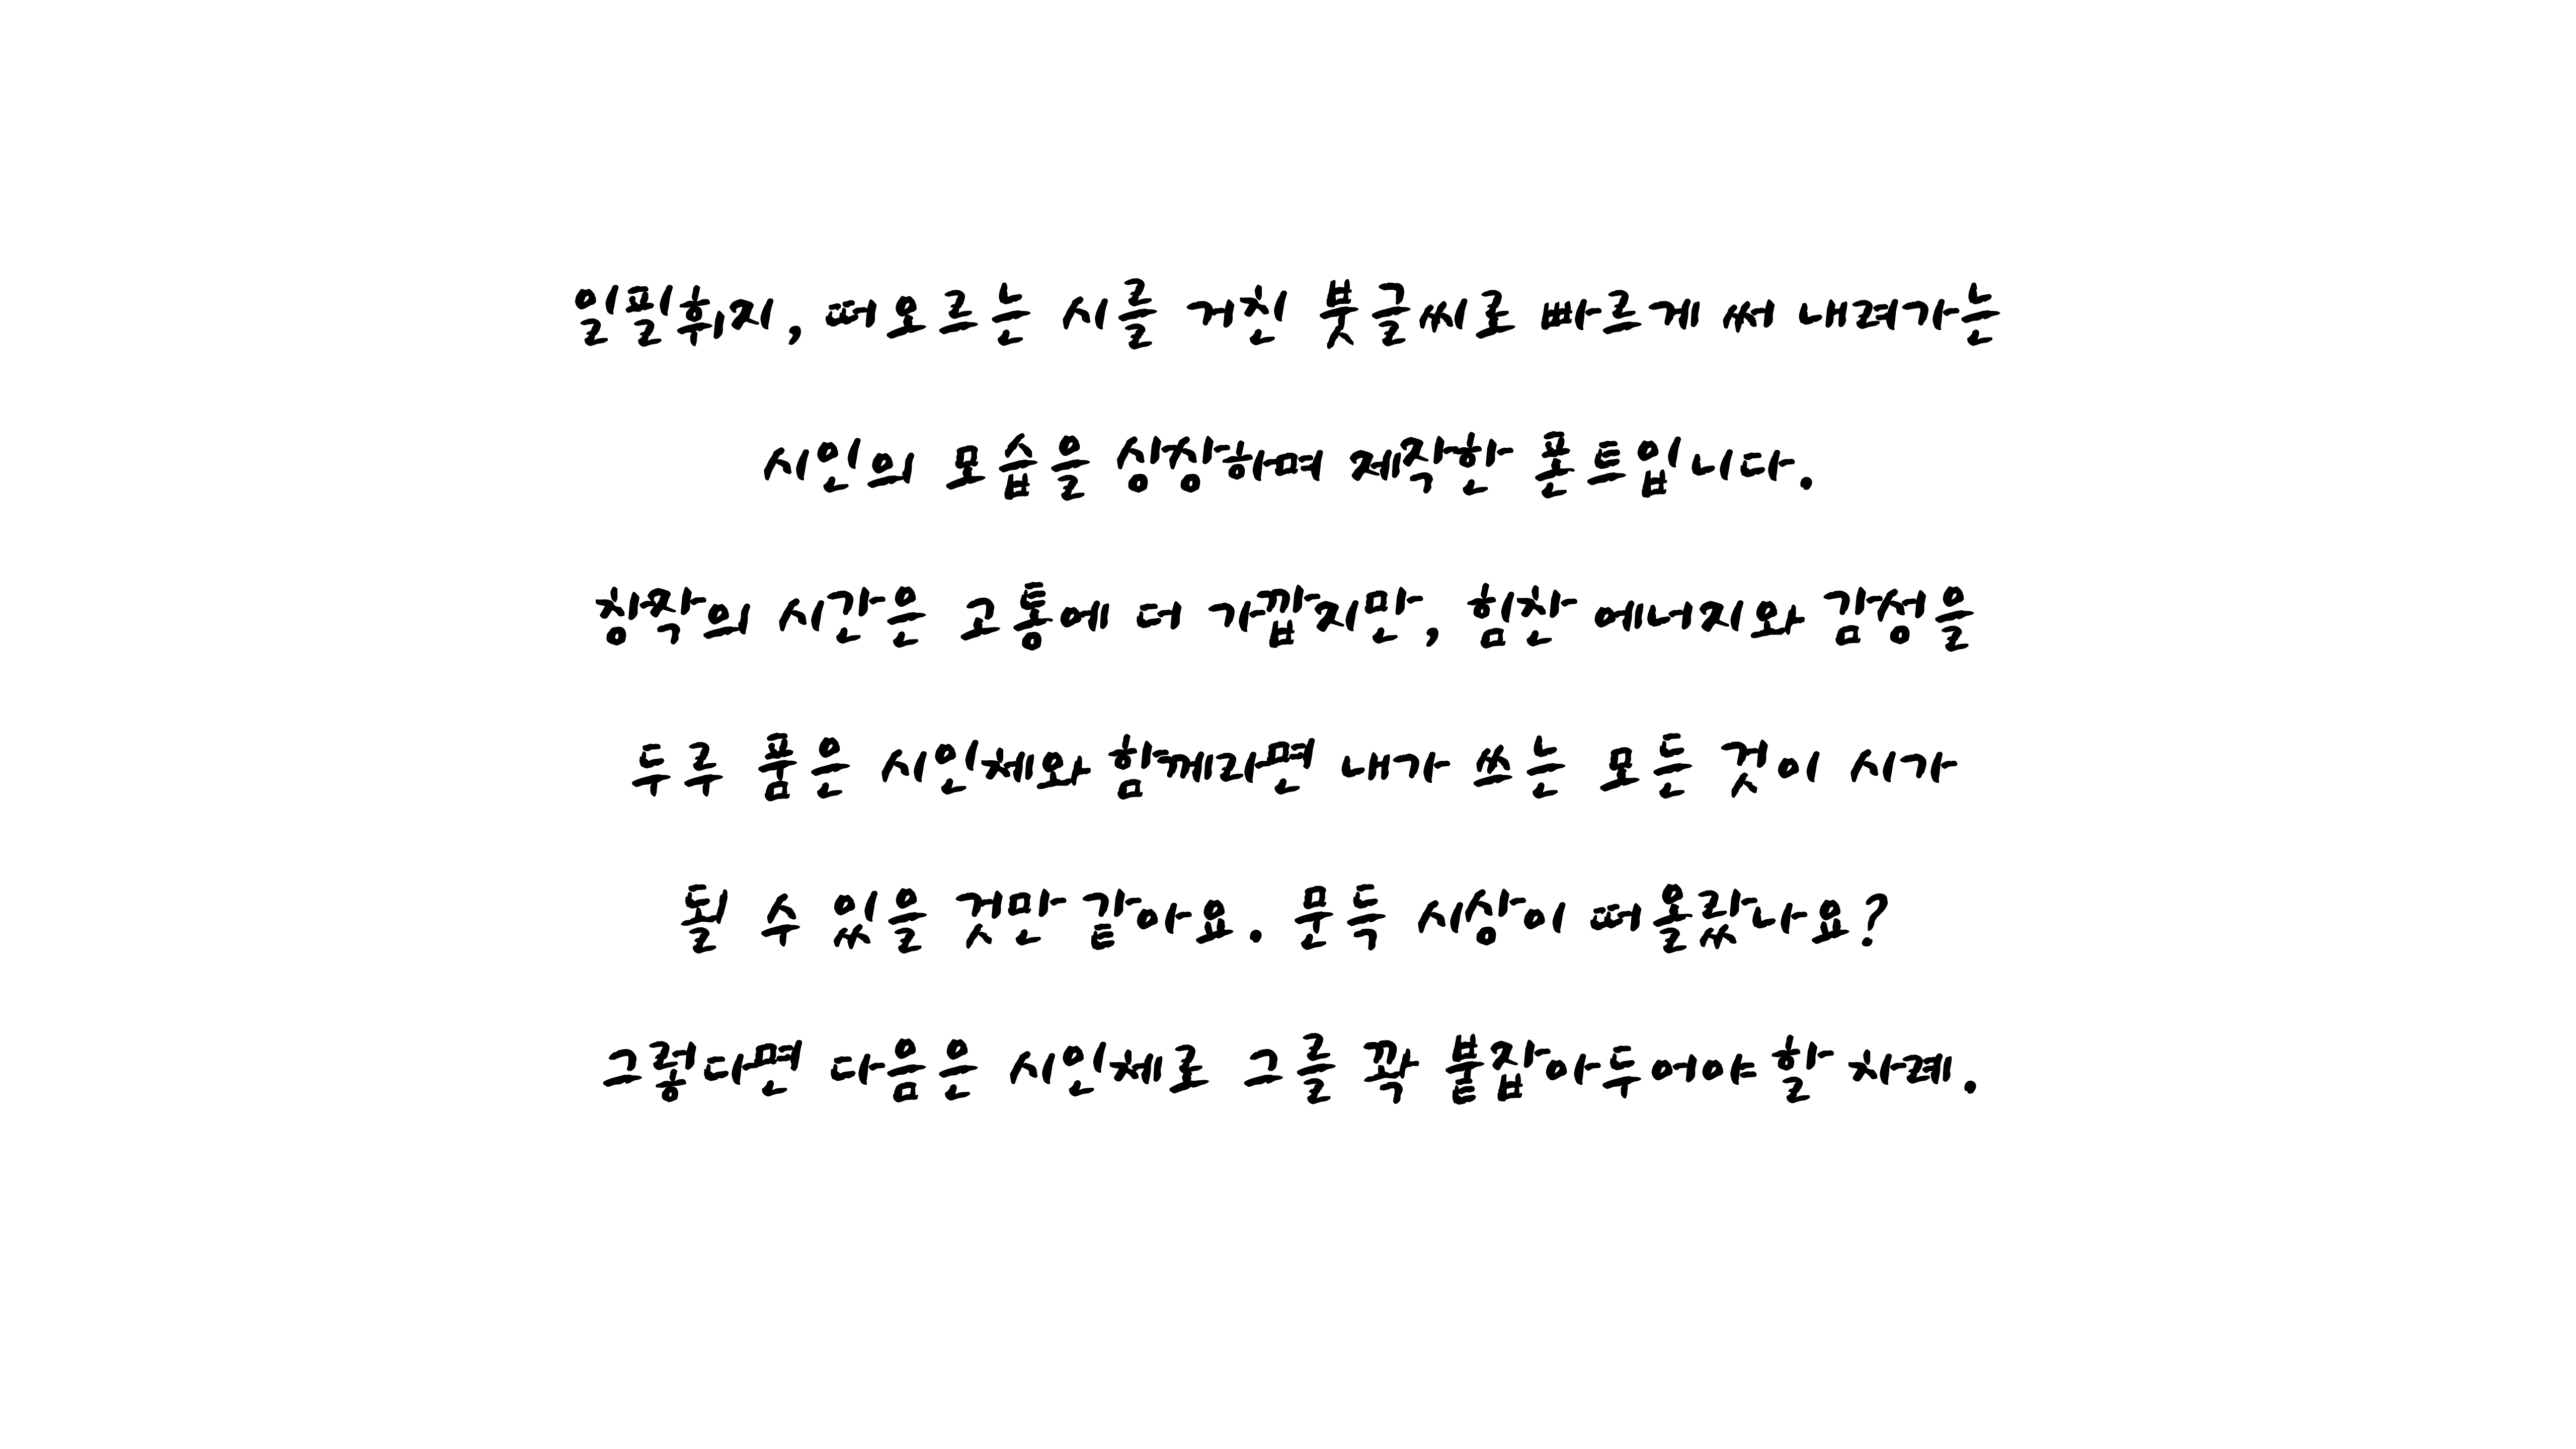 일필휘지, 떠오르는 시를 거친 붓글씨로 빠르게 써 내려가는
시인의 모습을 상상하며 제작한 폰트입니다.
창작의 시간은 고통에 더 가깝지만, 힘찬 에너지와 감성을
두루 품은 시인체와 함께라면 내가 쓰는 모든 것이 시가
될 수 있을 것만 같아요. 문득 시상이 떠올랐나요?
그렇다면 다음은 시인체로 그를 꽉 붙잡아두어야 할 차례.